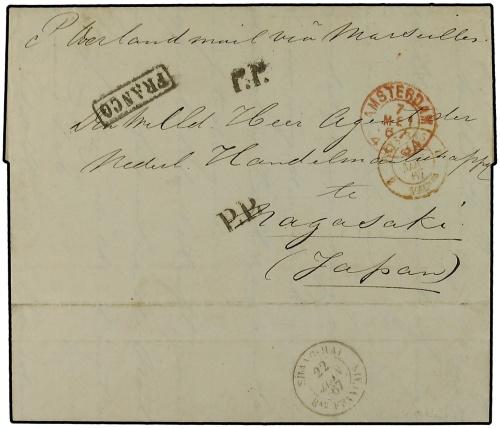 P Overland mail via Marseilles.
FRANCO
P.P.
AMSTERDAM
7
MEI
6
Den Weled. Heer Agent der
Nederl. Handelmaatschappij
te
P.P.
Nagasaki.
(Japan)
SHANG-HAI
22
JUIN
67